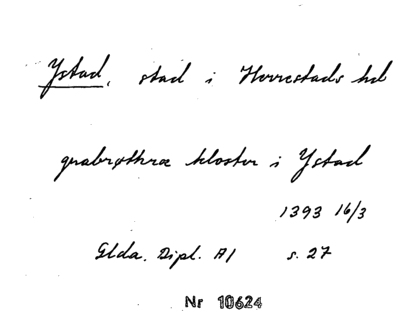 Ystad, stad i Herrestads hd
grabrøthræ kloster i Ystad
1393 16/3
Glda. Dipl. A1 s. 27
Nr 10624